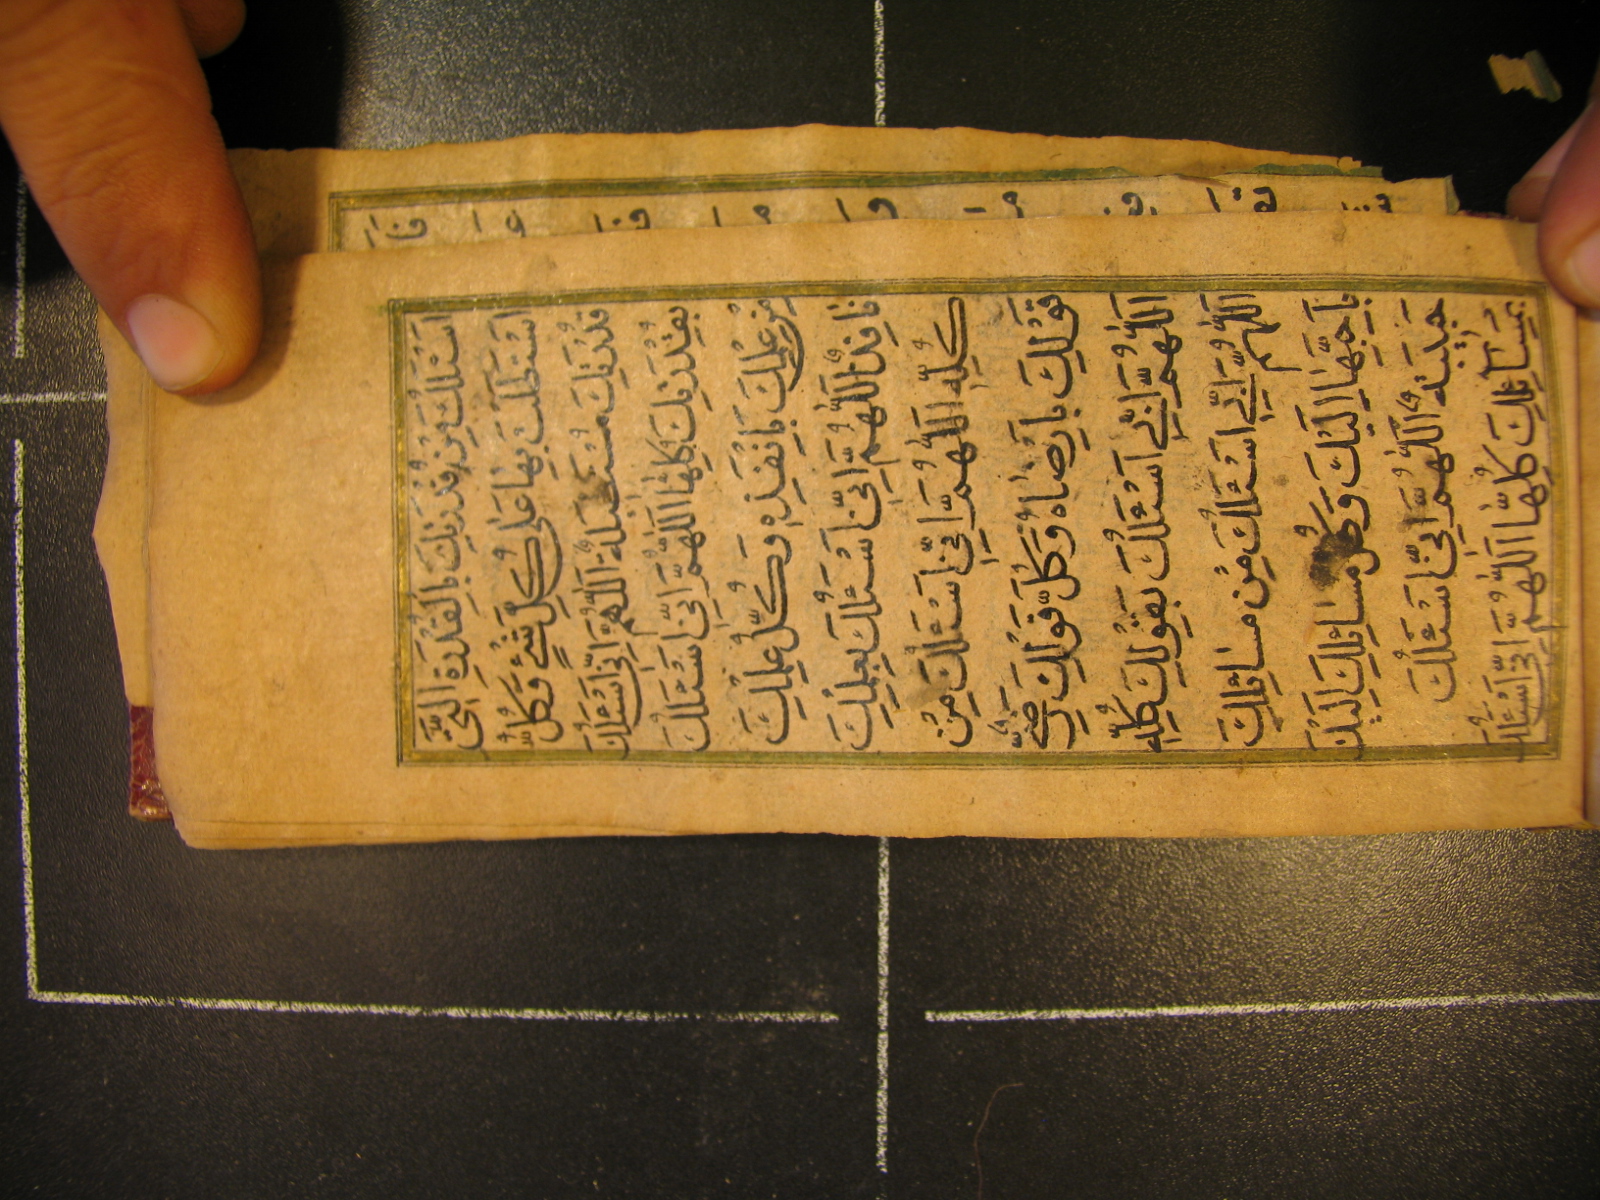 اَسْئَلُكَ مِنْ قُدْرَتِكَ بِالْقُدْرَةِ الَّتِی
اسْتَطَلْتَ بِهَا عَلٰی كُلِّ شَیْءٍ وَكُلُّ
قُدْرَتِكَ مُسْتَطِيلَةٌ اَللّٰهُمَّ اِنّی اَسْئَلُكَ
بِقُدْرَتِكَ كُلِّهَا اَللّٰهُمَّ اِنّی اَسْئَلُكَ
مِنْ عِلْمِكَ بِاَنْفَذِهِ وَكُلُّ عِلْمِكَ
نَافِذٌ اَللّٰهُمَّ اِنّی اَسْئَلُكَ بِعِلْمِكَ
كُلِّهِ اَللّٰهُمَّ اِنّی اَسْئَلُكَ مِنْ
قَوْلِكَ بِاَرْضَاهُ وَكُلُّ قَوْلِكَ رَضِیٌّ
اَللّٰهُمَّ اِنّی اَسْئَلُكَ بِقَوْلِكَ كُلِّهِ
اَللّٰهُمَّ اِنّی اَسْئَلُكَ مِنْ مَسَائِلِكَ
بِاَحَبِّهَا اِلَيْكَ وَكُلُّ مَسَائِلِكَ اِلَيْكَ
حَبِيبَةٌ اَللّٰهُمَّ اِنّی اَسْئَلُكَ
بِمَسَائِلِكَ كُلِّهَا اَللّٰهُمَّ اِنّی اَسْئَلُكَ